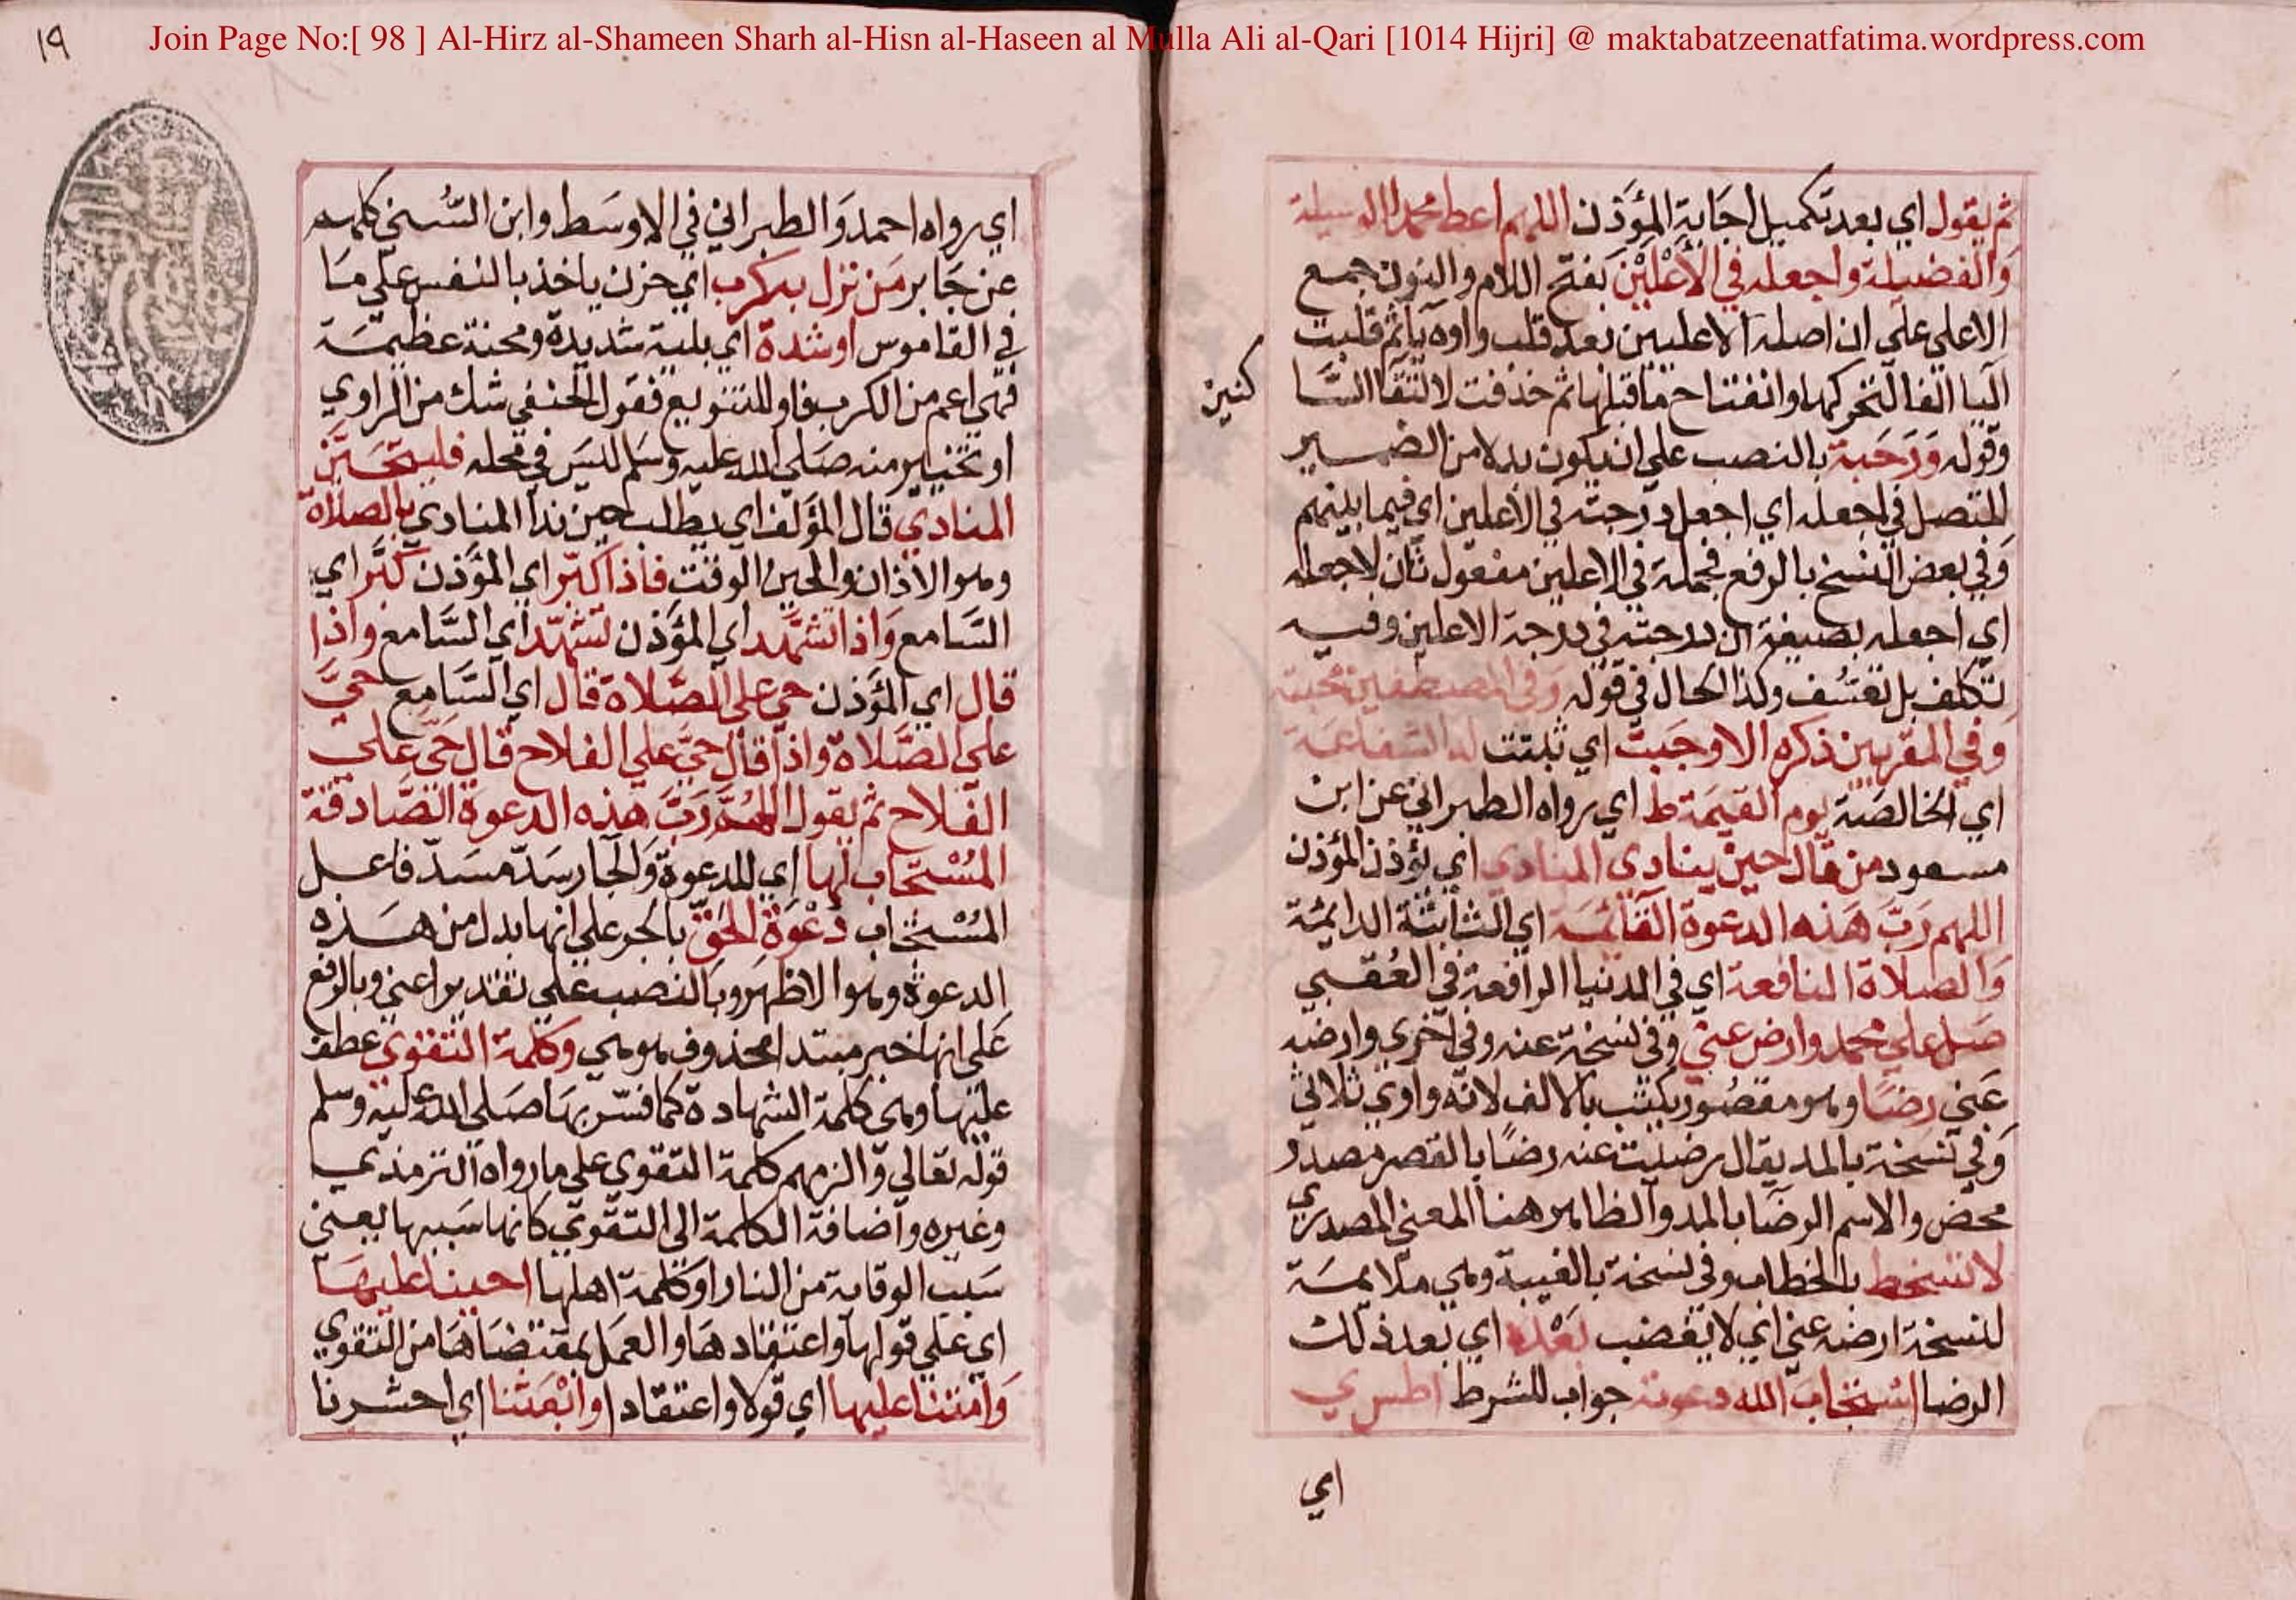 Join Page No:[ 98 ] Al-Hirz al-Shameen Sharh al-Hisn al-Haseen al Mulla Ali al-Qari [1014 Hijri] @ maktabatzeenatfatima.wordpress.com
ثم يقول اي بعد تكميل اجَابة المؤَذن اللهم اعط محمدا الوسيلة
وَالفضيلة واجعله في الأَعْلَيْنَ بفتح اللام والنون جمع
الاعلي علي ان اصله الاعليين بعد قلب واوه يا ثم قلبت
اليا الفا لتحركها وانفتاح ما قبلها ثم حذفت لالتقا السَّا
كنين
وقوله وَدَرَجَته بالنصب علي ان يكون بدلا من الضمير
المتصل في اجعله اي اجعل درجته في الاعلين اي فيما بينهم
وَفي بعض النسخ بالرفع فجملة في الاعلين مفعول ثان لاجعله
اي اجعله بصيغة ان درجته في درجة الاعلين وفيه
تكلف بل تعسُّف وكذا الحال في قوله وَفي المصطفين محبته
وَفي المقربين ذكره الا وجَبَتْ اي ثبتت له الشفاعة
اي الخالصَة يوم القيمَة ط اي رواه الطبراني عن ابن
مسعود من قال حين ينادى المنادى اي يؤذن المؤذن
اللهم رَبَّ هَذه الدعوة القائمَة اي الثابتة الدايمة
وَالصلاة النافعة اي في الدنيا الرافعة في العُقبي
صَل علي محمد وارض عني وفي نسخة عنه وفي اخري وارضه
عَني رضًا وهو مقصُور يكتب بالالف لانه واوي ثلاثي
وَفي نسخة بالمد يقال رضيت عنه رضًا بالقصر مصدر
محض والاسم الرضَا بالمد والظاهر هنا المعني المصدري
لا تسخط بالخطاب وفي نسخة بالغيبة وهي ملايمَة
لنسخة ارضه عني اي لا يغضب بَعْده اي بعد ذلك
الرضا استجاب الله دعوته جواب للشرط ا طس ي
اي
١٩
اي رواه احمد وَالطبراني في الاوسَط وابن السُّني كلهم
عن جَابر مَن نزل به كرب اي حزن ياخذ بالنفس علي مَا
في القاموس او شدة اي بلية شديدة ومحنة عظيمَة
فهي اعم من الكرب فاو للتنويع فقول الحنفي شك من الراوي
او تخيير منه صَلي الله عليه وسَلم ليسَ في محله فليتحَيَّن
المنادي قال المؤَلف اي يطلب حين ندا المنادي بالصلاة
وهو الاذان والحين الوقت فاذا كبّر اي المؤَذن كبَّر اي
السَّامع وَاذا تشهَّد اي المؤَذن تشهّد اي السَّامع واذا
قال اي المؤَذن حي علي الصَّلاة قال اي السَّامع حيَّ
علي الصَّلاة واذا قال حَيَّ علي الفلاح قال حَيَّ علي
الفلاح ثم يقول اللهُمَّ رَبَّ هذه الدعوة الصَّادقة
المُسْتجَاب لهَا اي للدعوة وَالجار سَدّ مسَدّ فاعل
المُسْتجَاب دَعْوَةِ الحق بالجر علي انها بدل من هَذه
الدعوة وهو الاظهَر وبالنصب علي تقدير اعني وبالرفع
عَلي انها خبر مبتدا محذوف هو هي وكلمة التقوى عطف
عليها وهي كلمة الشهادة كما فسّر بهَا صَلي الله عليه وسلم
قوله تعالي وَالزمهم كلمة التقوى علي ما رواه الترمذي
وغيره وَاضافة الكلمة الي التقوي كانها سَببها يعني
سَبب الوقاية من النار او كلمة اهلها احينا عليهَا
اي عَلي قولها واعتقادهَا والعمَل بمقتضَاهَا من التقوي
وَامتنا عليها اي قولا واعتقادا وابْعَثنا اي احشرنا